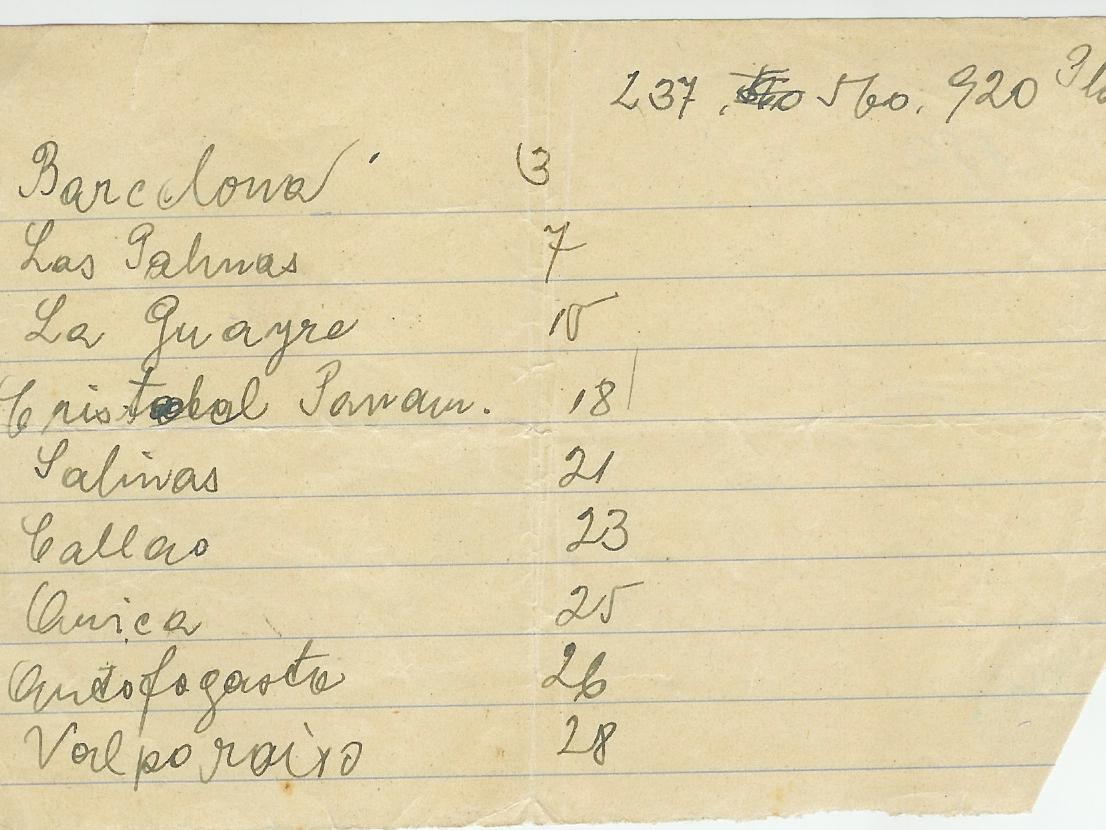 237. 560. 920
Barcelona 3
Las Palmas 7
La Guayre 15
Cristobal Panam. 18
Salinas 21
Callao 23
Arica 25
Antofogasta 26
Valporaiso 28